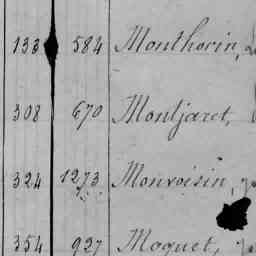 133 584 Monthorin,
308 670 Montjaret,
324 1273 Monvoisin,
354 927 Moquet,